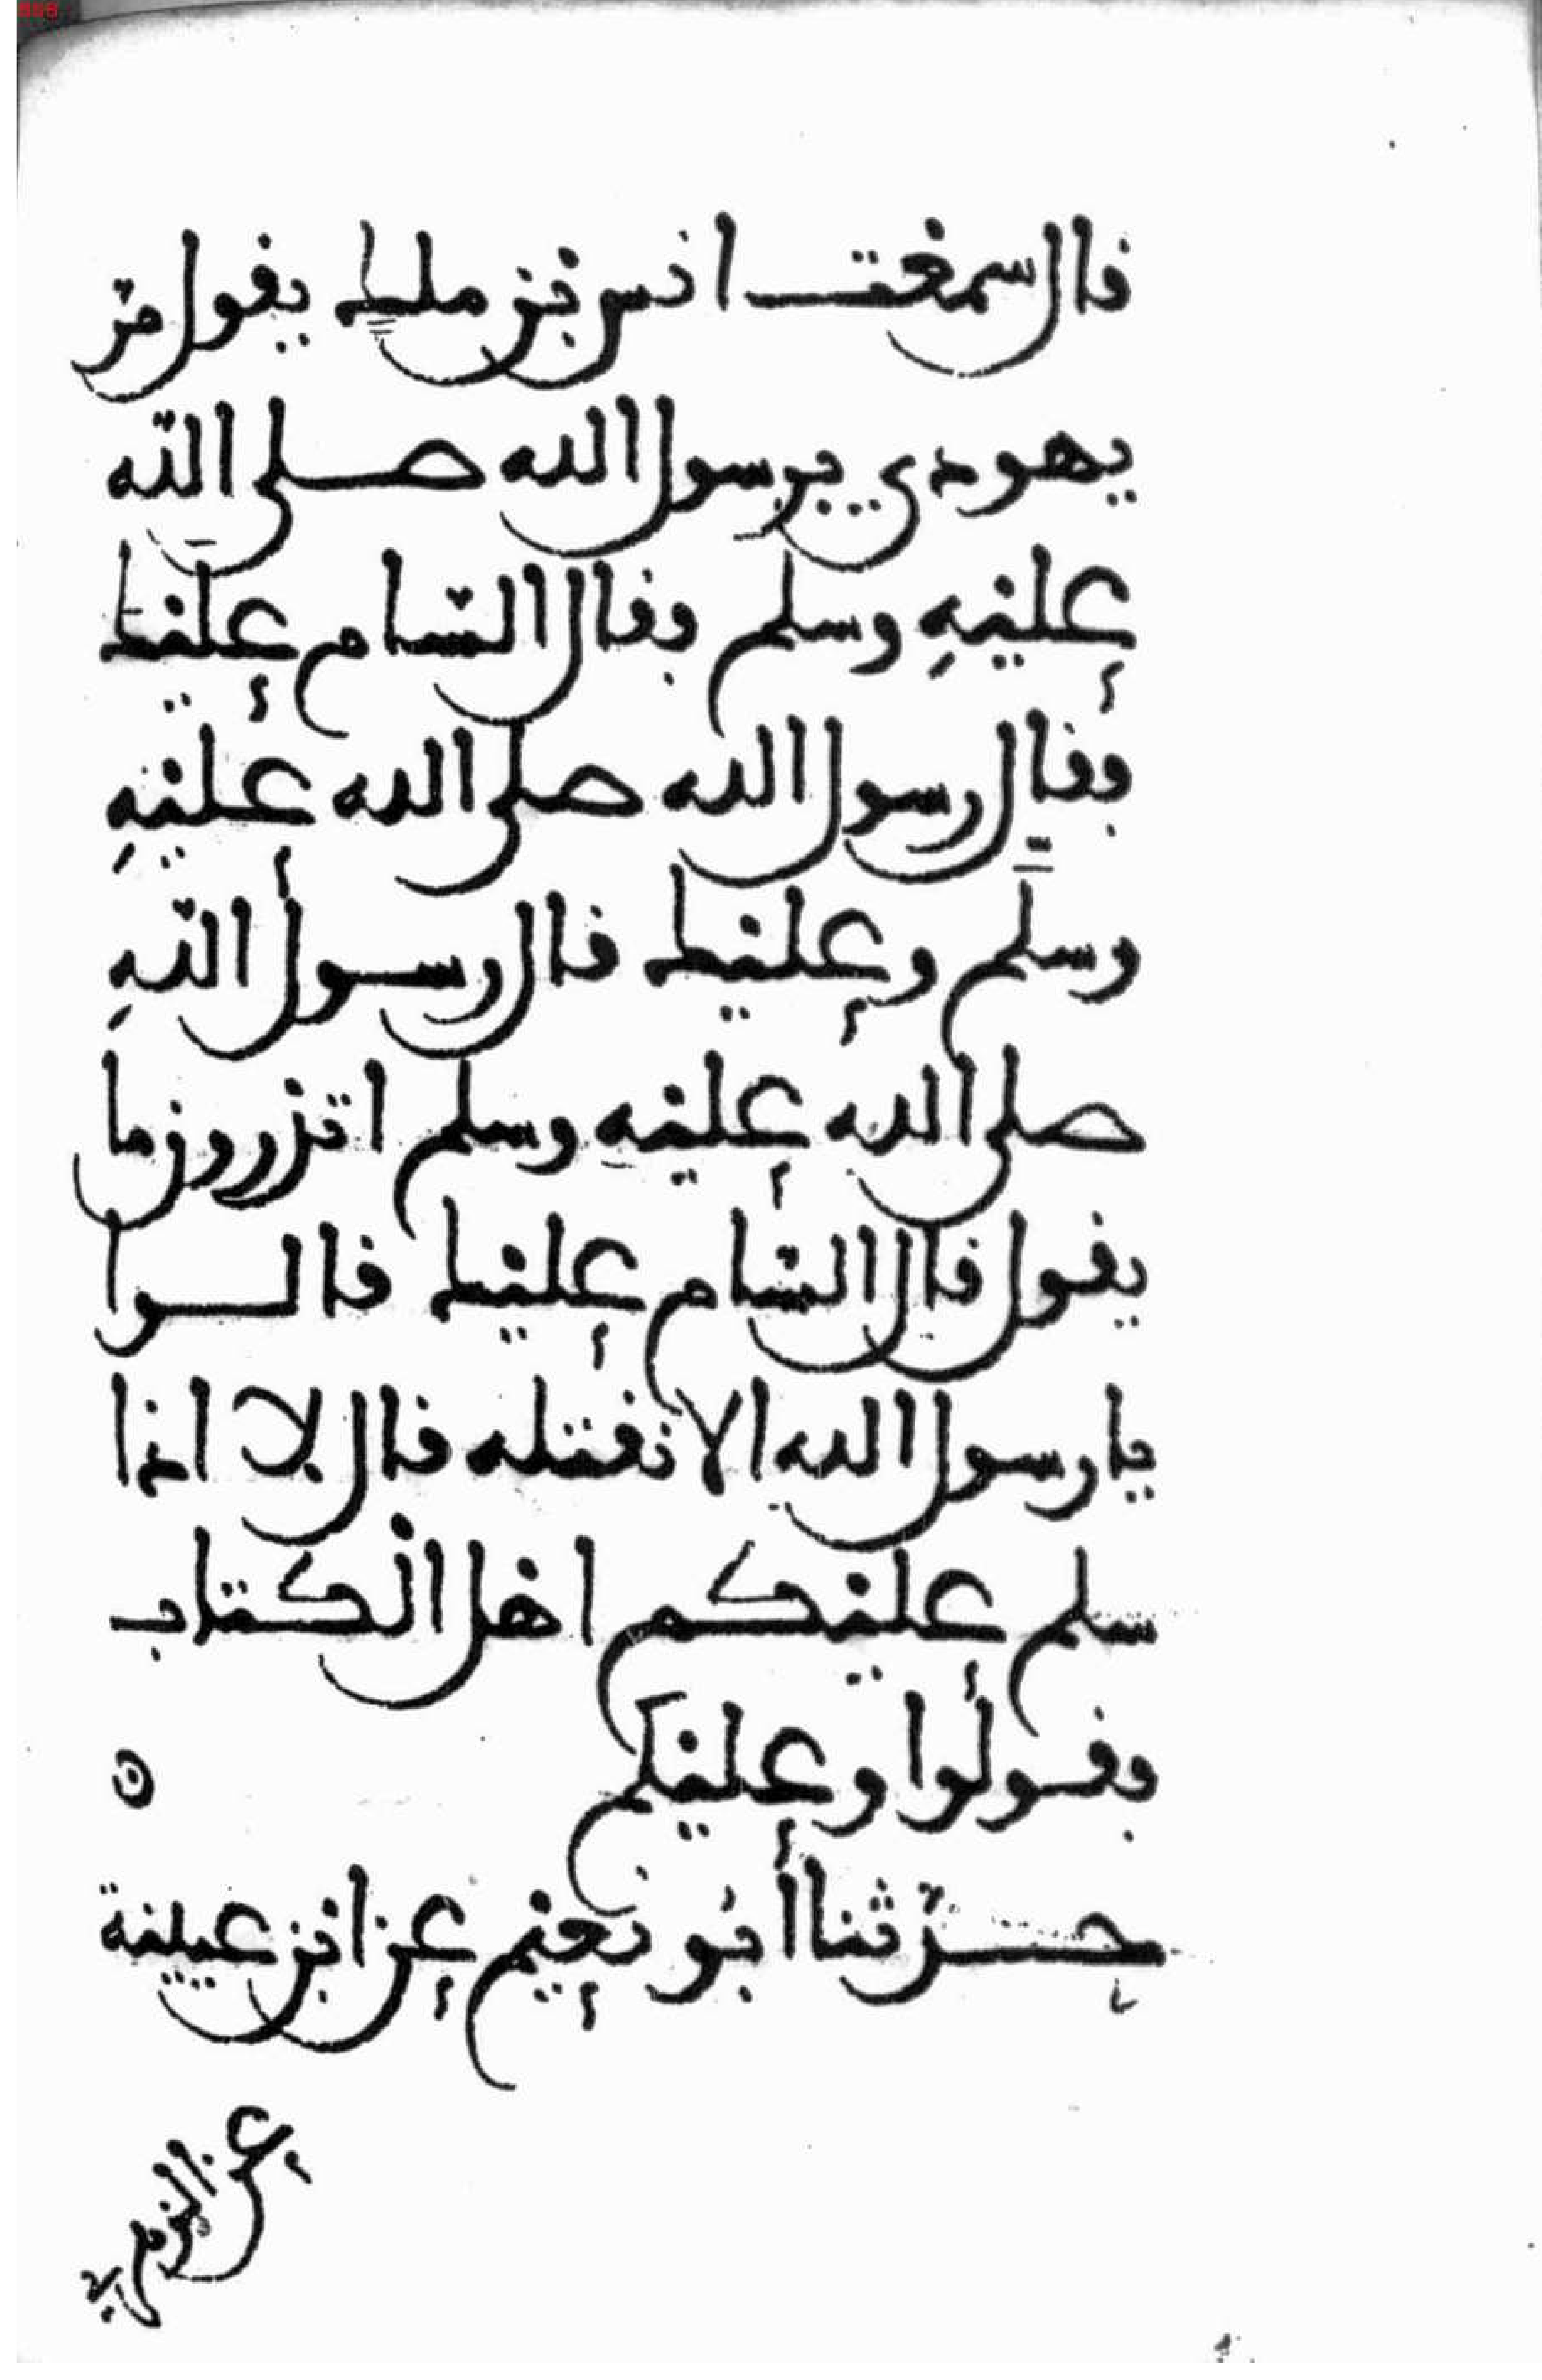 858
قال سمعت انس بن ملك يقول مر
يهودي برسول الله صلى الله
عليه وسلم فقال السام عليك
فقال رسول الله صلى الله عليه
وسلم وعليك قال رسول الله
صلى الله عليه وسلم اتدرون ما
يقول قال السام عليك قالوا
يا رسول الله الا نقتله قال لا اذا
سلم عليكم اهل الكتاب
فقولوا وعليكم ه
حدثنا أبو نعيم عن ابن عيينة
عن الزهري